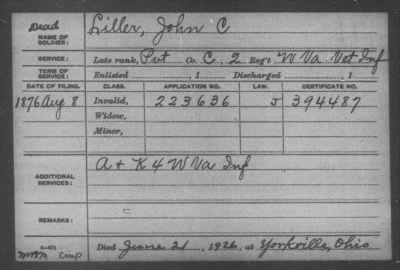 Dead
NAME OF SOLDIER: Liller, John C
SERVICE: Late rank, Pvt Co. C, 2 Reg't W Va Vet Inf
TERM OF SERVICE: Enlisted , 1 Discharged , 1
DATE OF FILING. CLASS. APPLICATION NO. LAW. CERTIFICATE NO.
1876 Aug 8 Invalid, 223636 J 394487
Widow,
Minor,
ADDITIONAL SERVICES: A + K 4 W Va Inf
REMARKS:
Died June 21, 1926, at Yorkville, Ohio